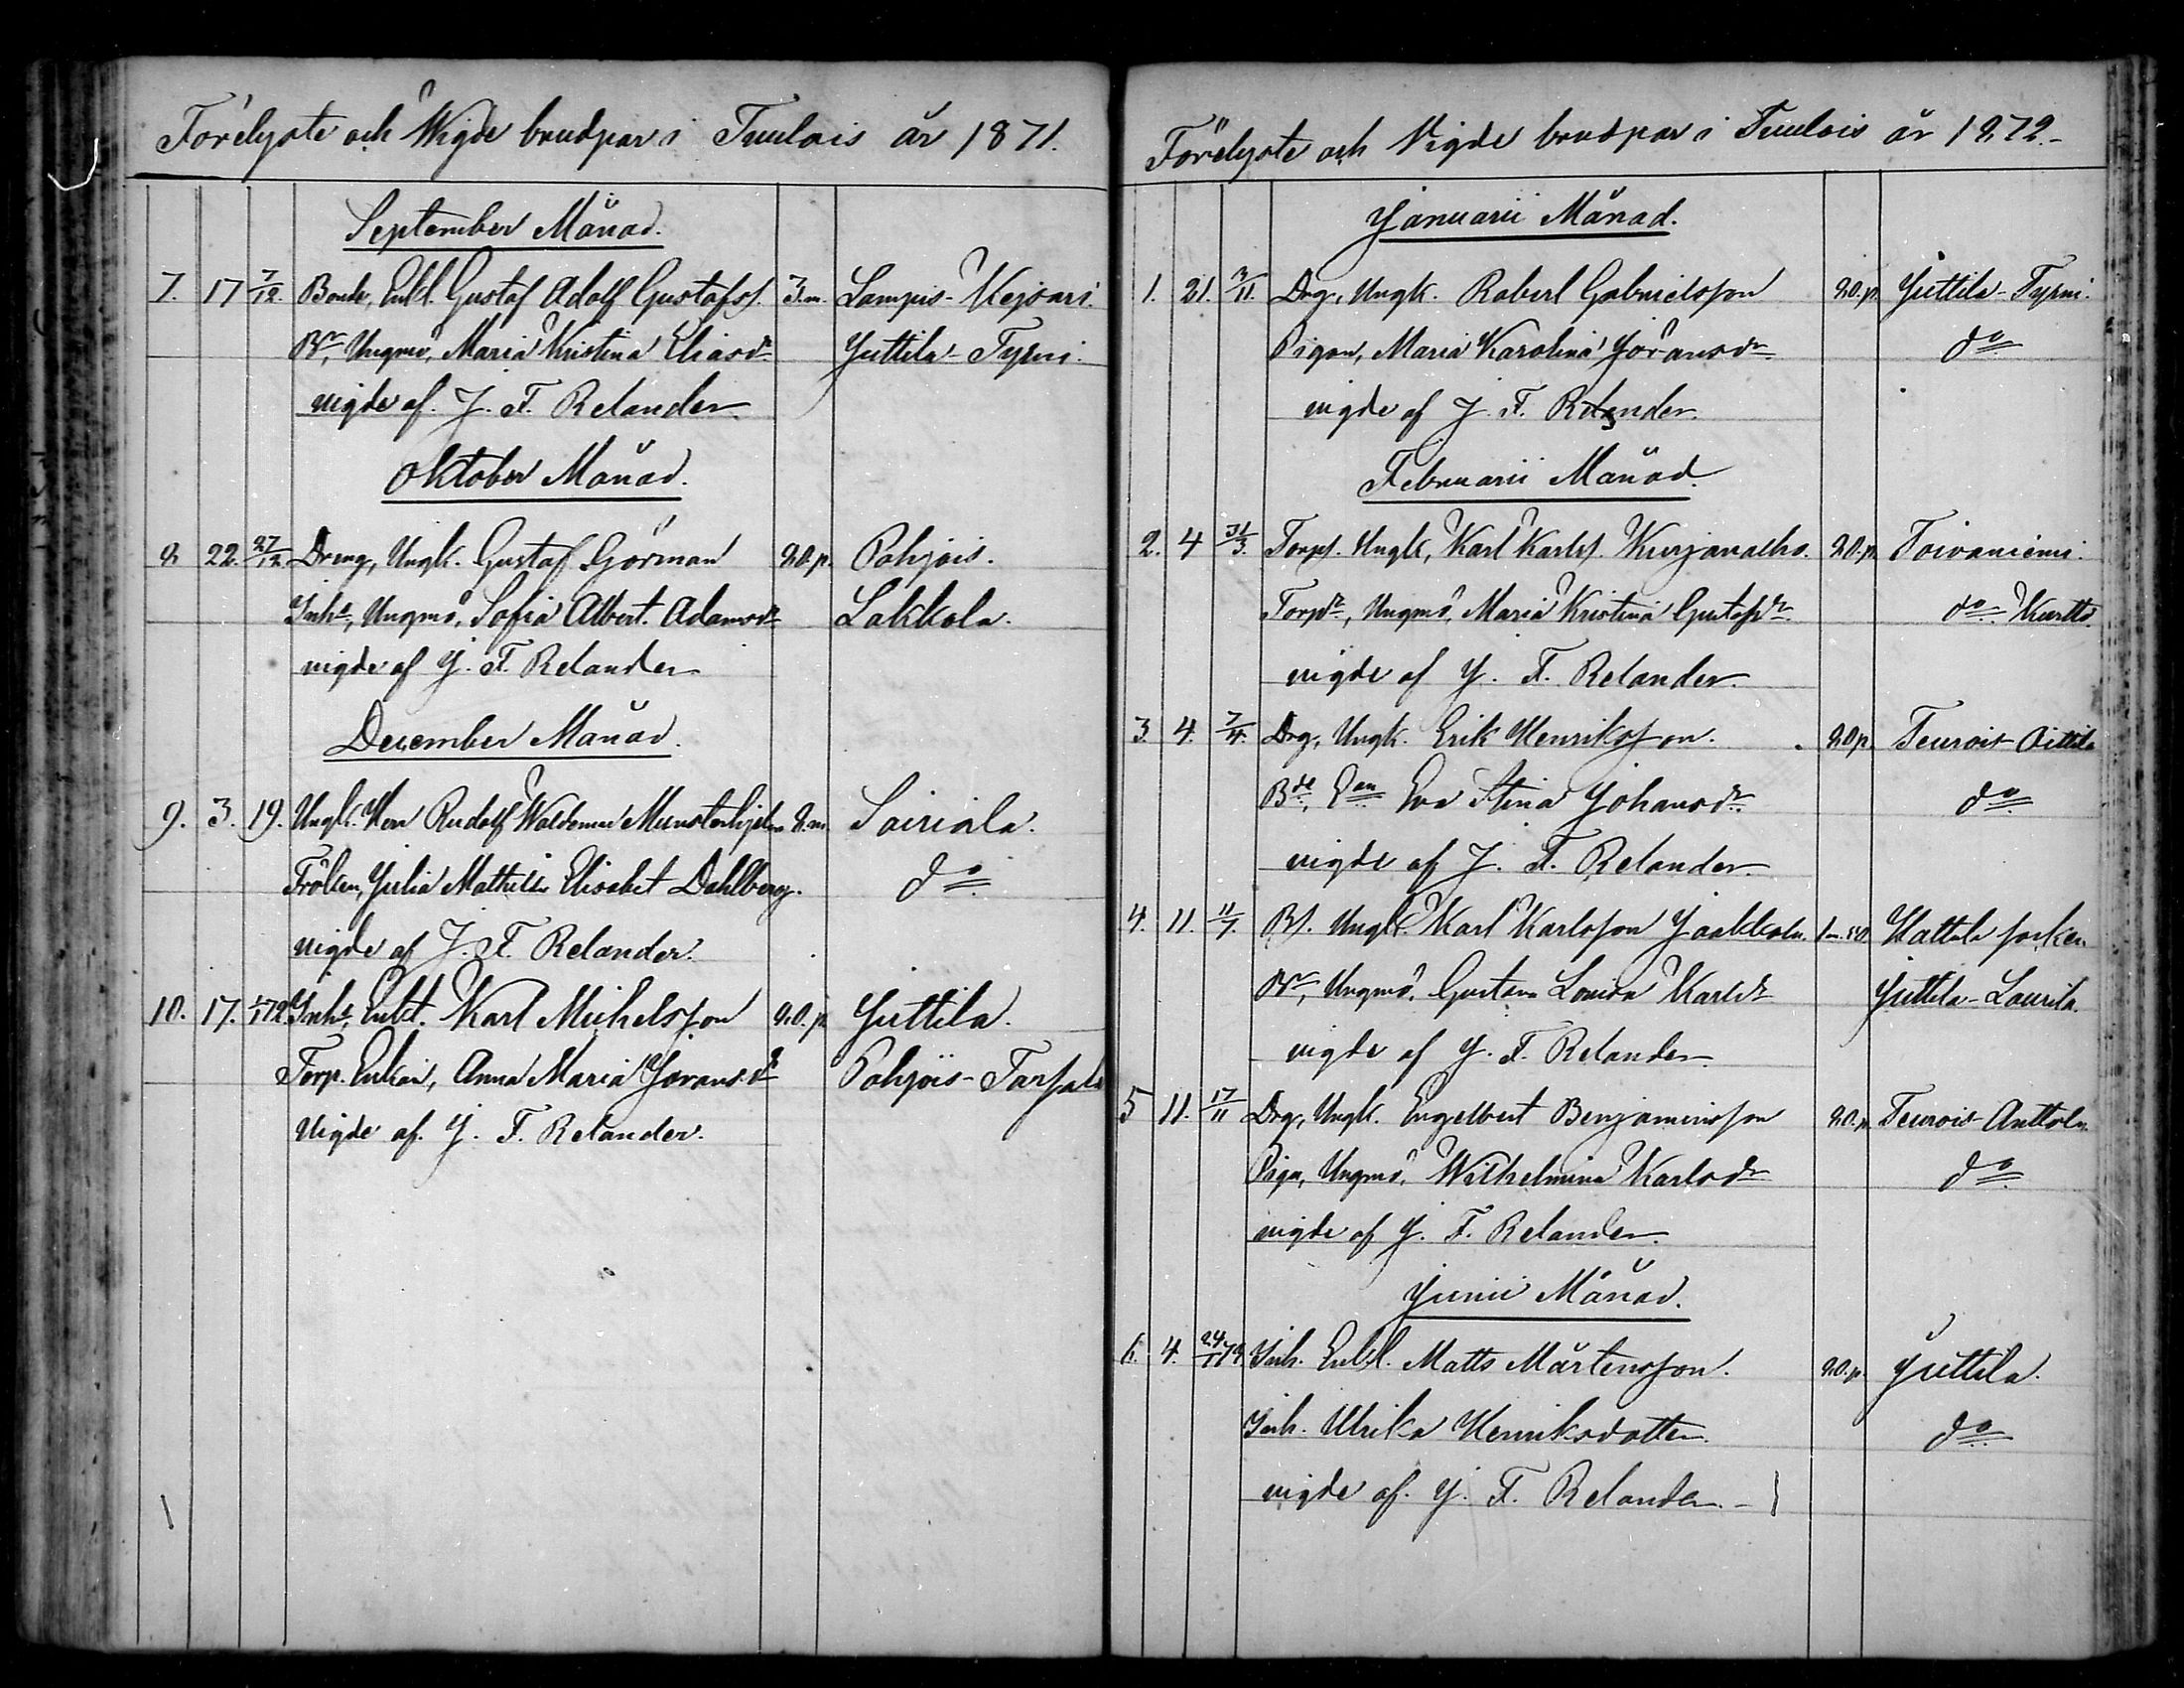 Förelyste och Wigde brudpar i Tuulois år 1871.
September Månad.
7. 17 7/12. Bonde, Enkl. Gustaf Adolf Gustafss. 3.m. Lampis - Kejsari.
Br, Ungmö, Maria Kristina Eliasdr Juttila - Tyrni.
vigde af. J. F. Relander.
Oktober Månad.
8 22. 27/12 Dreng, Ungk. Gustaf Görman 20.p. Pohjois.
Inhs, Ungmö, Sofia Albert. Adamsdr Lakkola.
vigde af J. F. Relander
December Månad.
9. 3. 19. Ungk. Herr Rudolf Waldemar Munsterhjelm 8.m. Sairiala.
Fröken, Julia Mathilda Elisabet Dahlberg. do
vigde af J. F. Relander.
10. 17. Inhs, Enkl. Karl Michelsson 20.p. Juttila.
Torp. Enkan, Anna Maria Göransdr Pohjois -
Vigde af. J. F. Relander.
Förelyste och Vigde brudpar i Tuulois år 1872.-
Januarii Månad.
1. 21. 3/11. Drg, Ungk. Robert Gabrielsson 20.p. Juttila - Tyrni.
Pigan, Maria Karolina Göransdr do
vigde af J. F. Relander.
Februarii Månad.
2. 4 31/3. Torps. Ungk, Karl Karlss. Kurjanaho. 20.p. Toivaniemi.
Torpdr, Ungmö, Maria Kristina Gustafsdr do Kurtto.
vigde af J. F. Relander.
3. 4. 7/4. Drg, Ungk. Erik Henriksson. 20p. Teurois Aittila
Bde, Ean Eva Stina Johansdr do
vigde af J. F. Relander.
4. 11. 11/7. Bs. Ungk. Karl Karlsson Jaakkola. Hattula socken
Br, Ungmö, Gustava Lovisa Karlsdr Juttila - Laurila.
vigde af J. F. Relander
5 11. 17/11 Drg, Ungk. Engelbert Benjaminsson 20.p. Teurois Anttola
Piga, Ungmö, Wilhelmina Karlsdr do
vigde af J. F. Relander.
Junii Månad.
6. 4. Inh. Enkl. Matts Mårtensson. 20.p. Juttila.
Inh. Ulrika Henriksdotter. do
vigde af. J. F. Relander. -